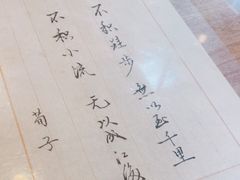 不积跬步 無以至千里
不积小流 无以成江海
荀子